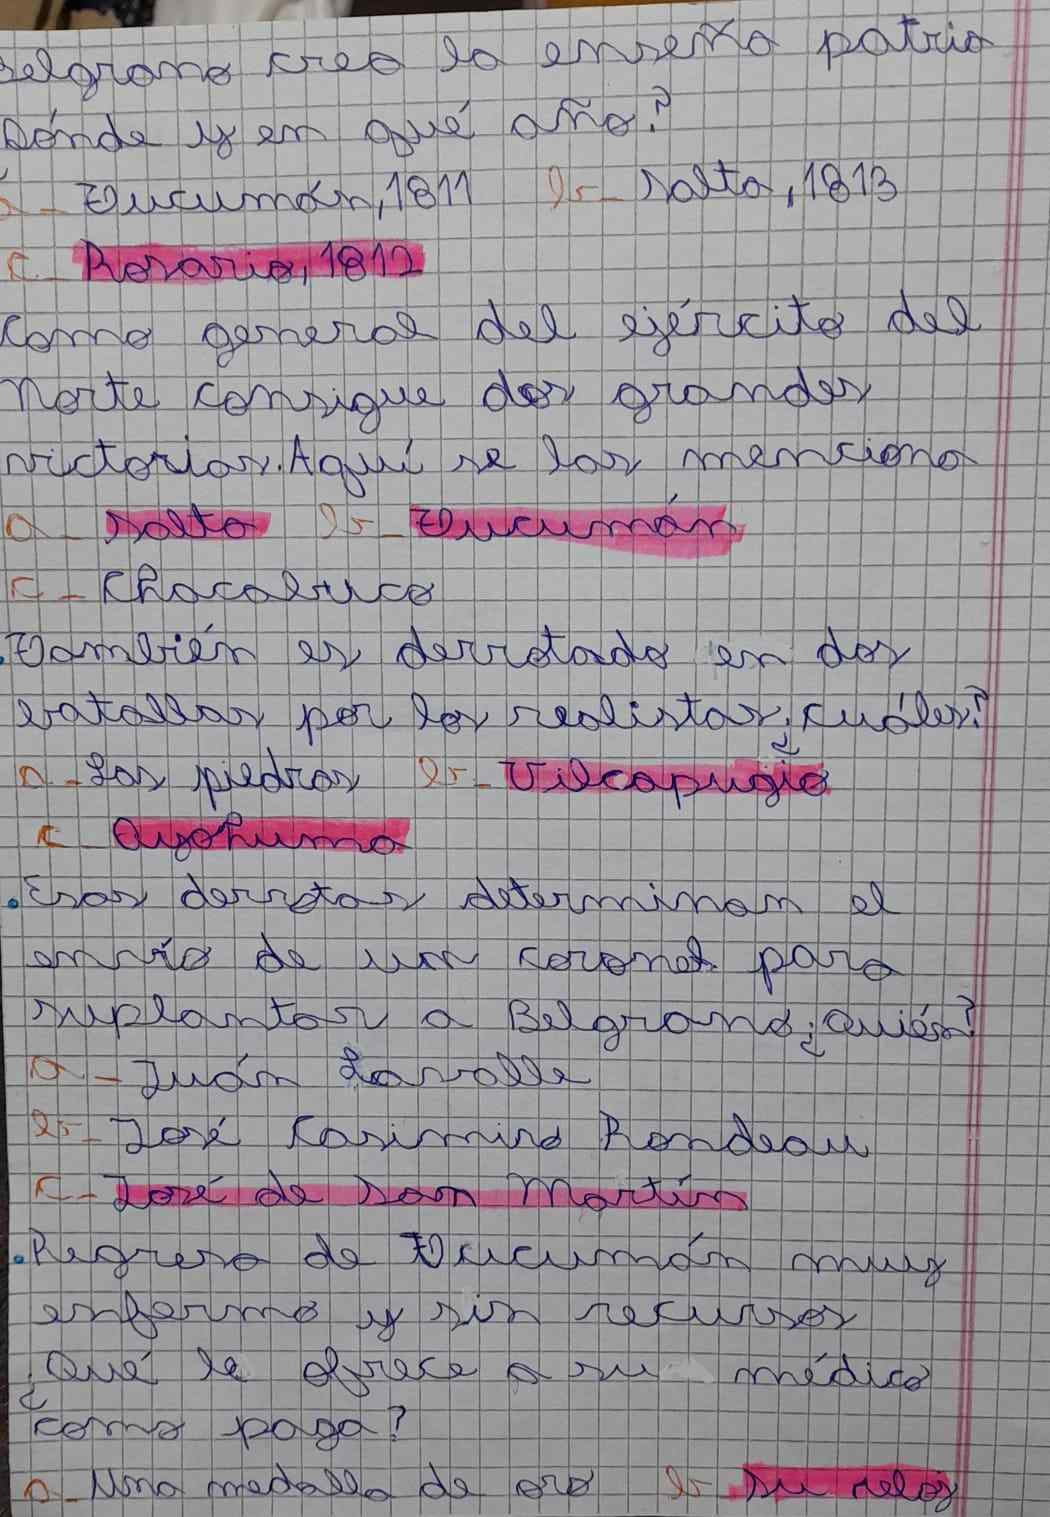 Belgrano crea la enseña patria
Dónde y en qué año?
a- Tucumán, 1811 b- Salta, 1813
c- Rosario, 1812
Como general del ejército del
Norte consigue dos grandes
victorias. Aquí se las menciona
a- Salta b- Tucumán
c- Chacabuco
.También es derrotado en dos
batallas por los realistas ¿cuáles?
a- Las piedras b- Vilcapugio
c- Ayohuma
.Esas derrotas determinan el
envío de un coronel para
suplantar a Belgrano ¿Quién?
a- Juán Lavalle
b- José Casimiro Rondeau
c- José de San Martín
.Regresa de Tucumán muy
enfermo y sin recursos
¿Qué le ofrece a su médico
como paga?
a- Una medalla de oro b- Su reloj